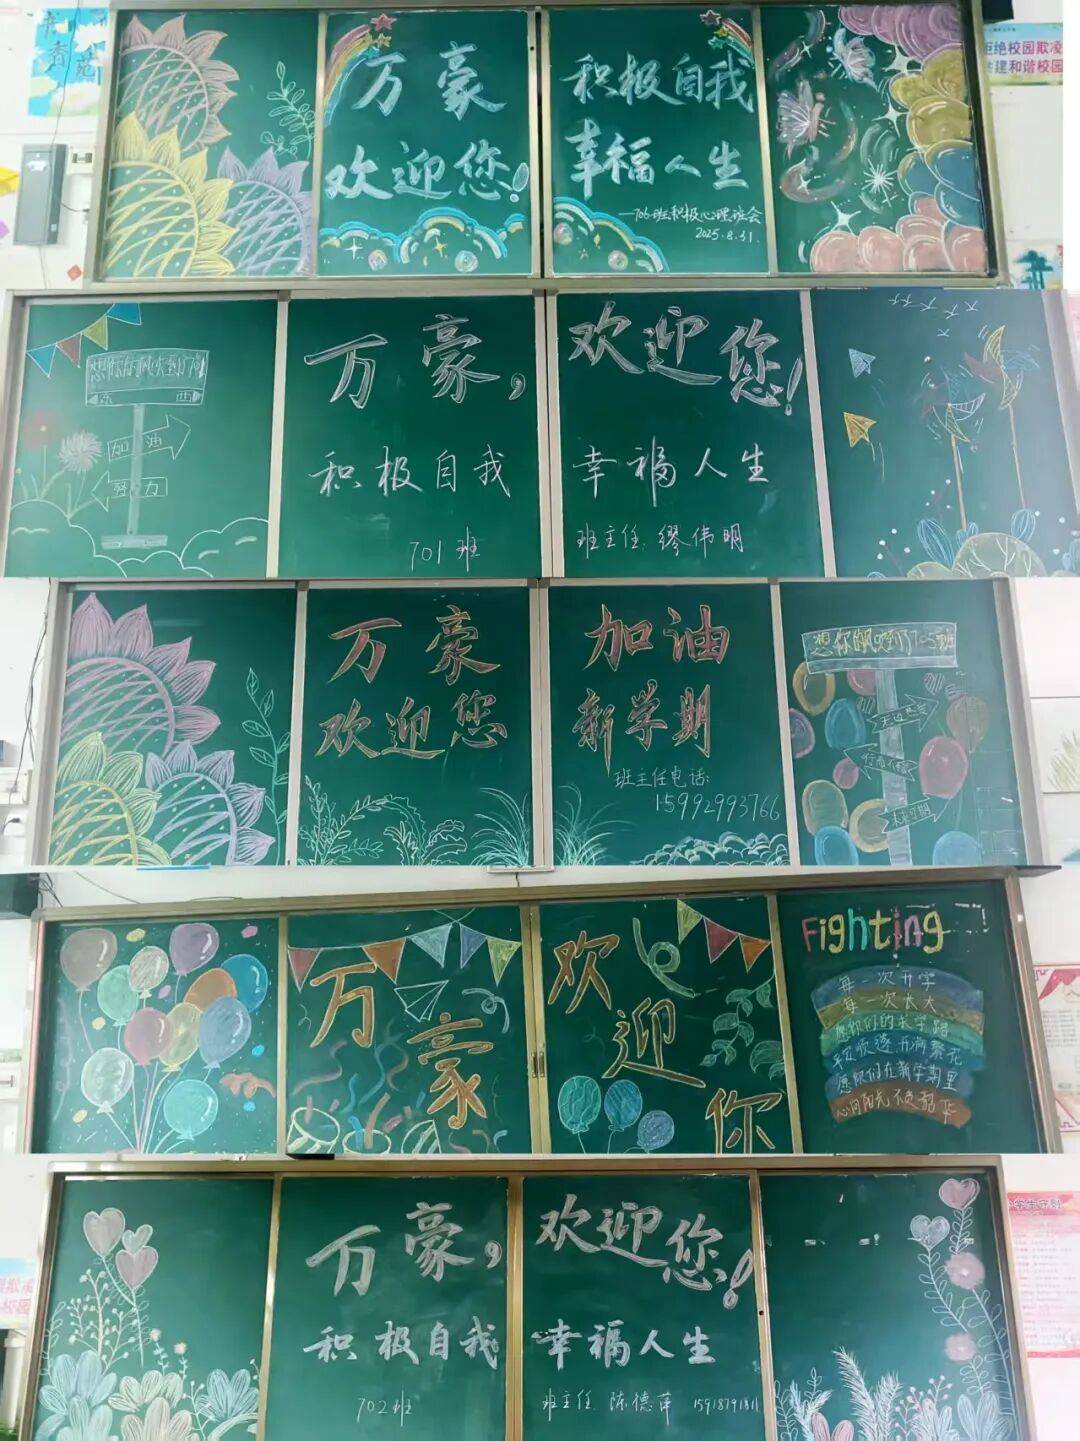 万豪
欢迎您!
积极自我
幸福人生
—706班积极心理班会
2025.8.31.
拒绝校园欺凌
共建和谐校园
想你的风吹到了
东 西
加油
努力
万豪,
积极自我
701班
欢迎您!
幸福人生
班主任:缪伟明
万豪
欢迎您
加油
新学期
班主任电话:
15992993766
想你的风吹到了705班
未来可期
万豪
欢迎你
Fighting
每一次开学
每一次长大
愿你们的求学路
愿你们在新学期里
万豪,
积极自我
702班
欢迎您!
幸福人生
班主任:陈德萍